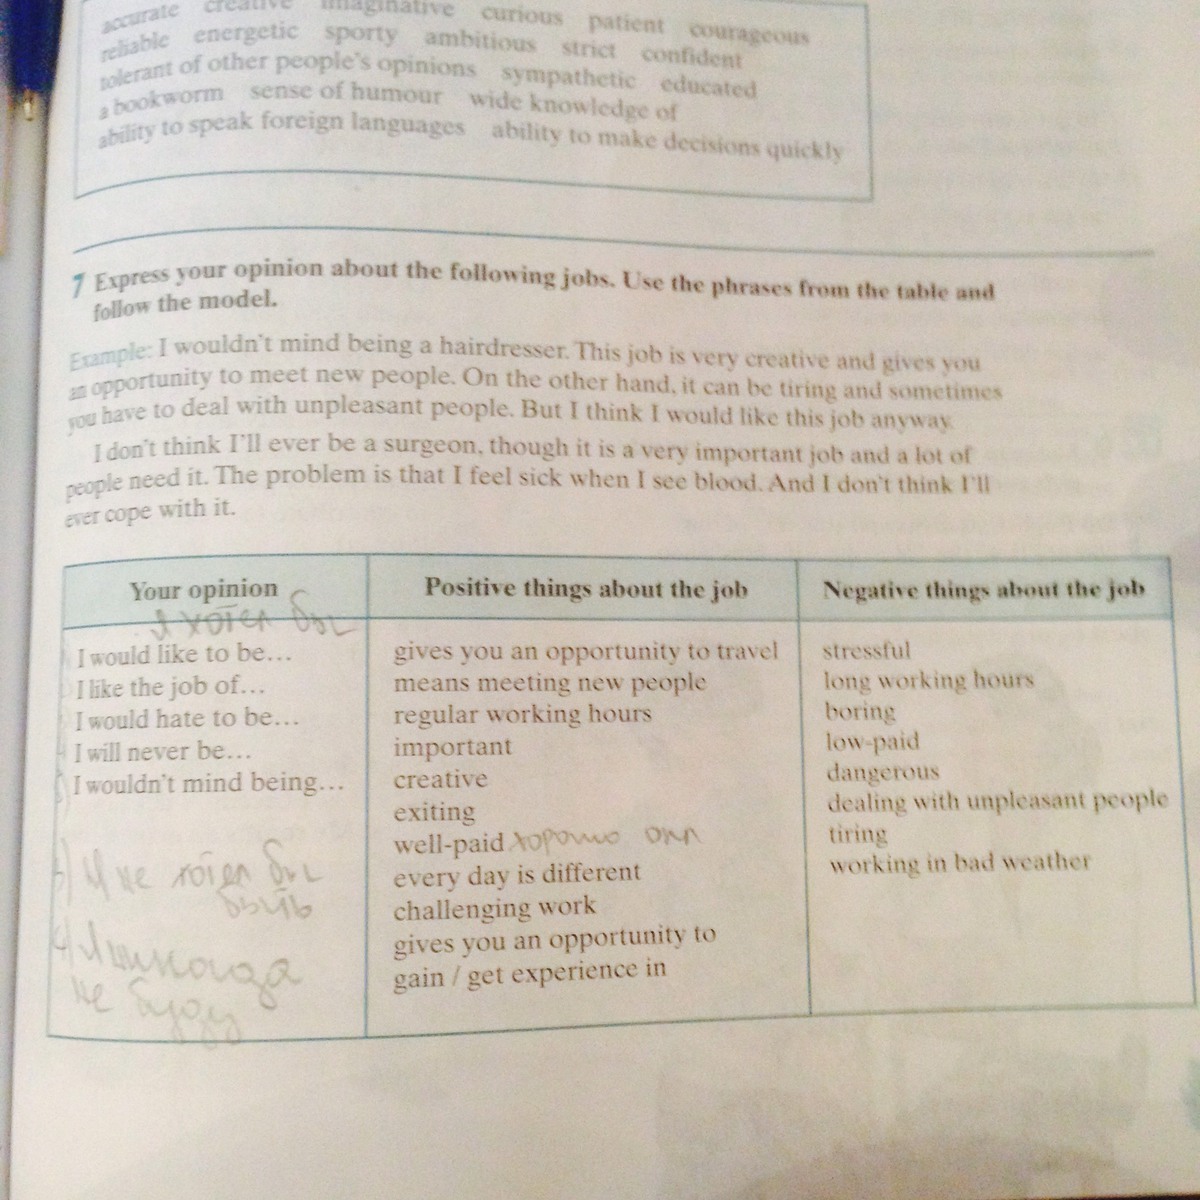 accurate creative imaginative curious patient courageous
reliable energetic sporty ambitious strict confident
tolerant of other people's opinions sympathetic educated
a bookworm sense of humour wide knowledge of
ability to speak foreign languages ability to make decisions quickly
7 Express your opinion about the following jobs. Use the phrases from the table and
follow the model.
Example: I wouldn't mind being a hairdresser. This job is very creative and gives you
an opportunity to meet new people. On the other hand, it can be tiring and sometimes
you have to deal with unpleasant people. But I think I would like this job anyway.
I don't think I'll ever be a surgeon, though it is a very important job and a lot of
people need it. The problem is that I feel sick when I see blood. And I don't think I'll
ever cope with it.
Your opinion
я хотел бы
I would like to be...
I like the job of...
I would hate to be...
I will never be...
I wouldn't mind being...
3) Я не хотел бы
быть
4) Я никогда
не буду
Positive things about the job
gives you an opportunity to travel
means meeting new people
regular working hours
important
creative
exiting
well-paid хорошо опл
every day is different
challenging work
gives you an opportunity to
gain / get experience in
Negative things about the job
stressful
long working hours
boring
low-paid
dangerous
dealing with unpleasant people
tiring
working in bad weather